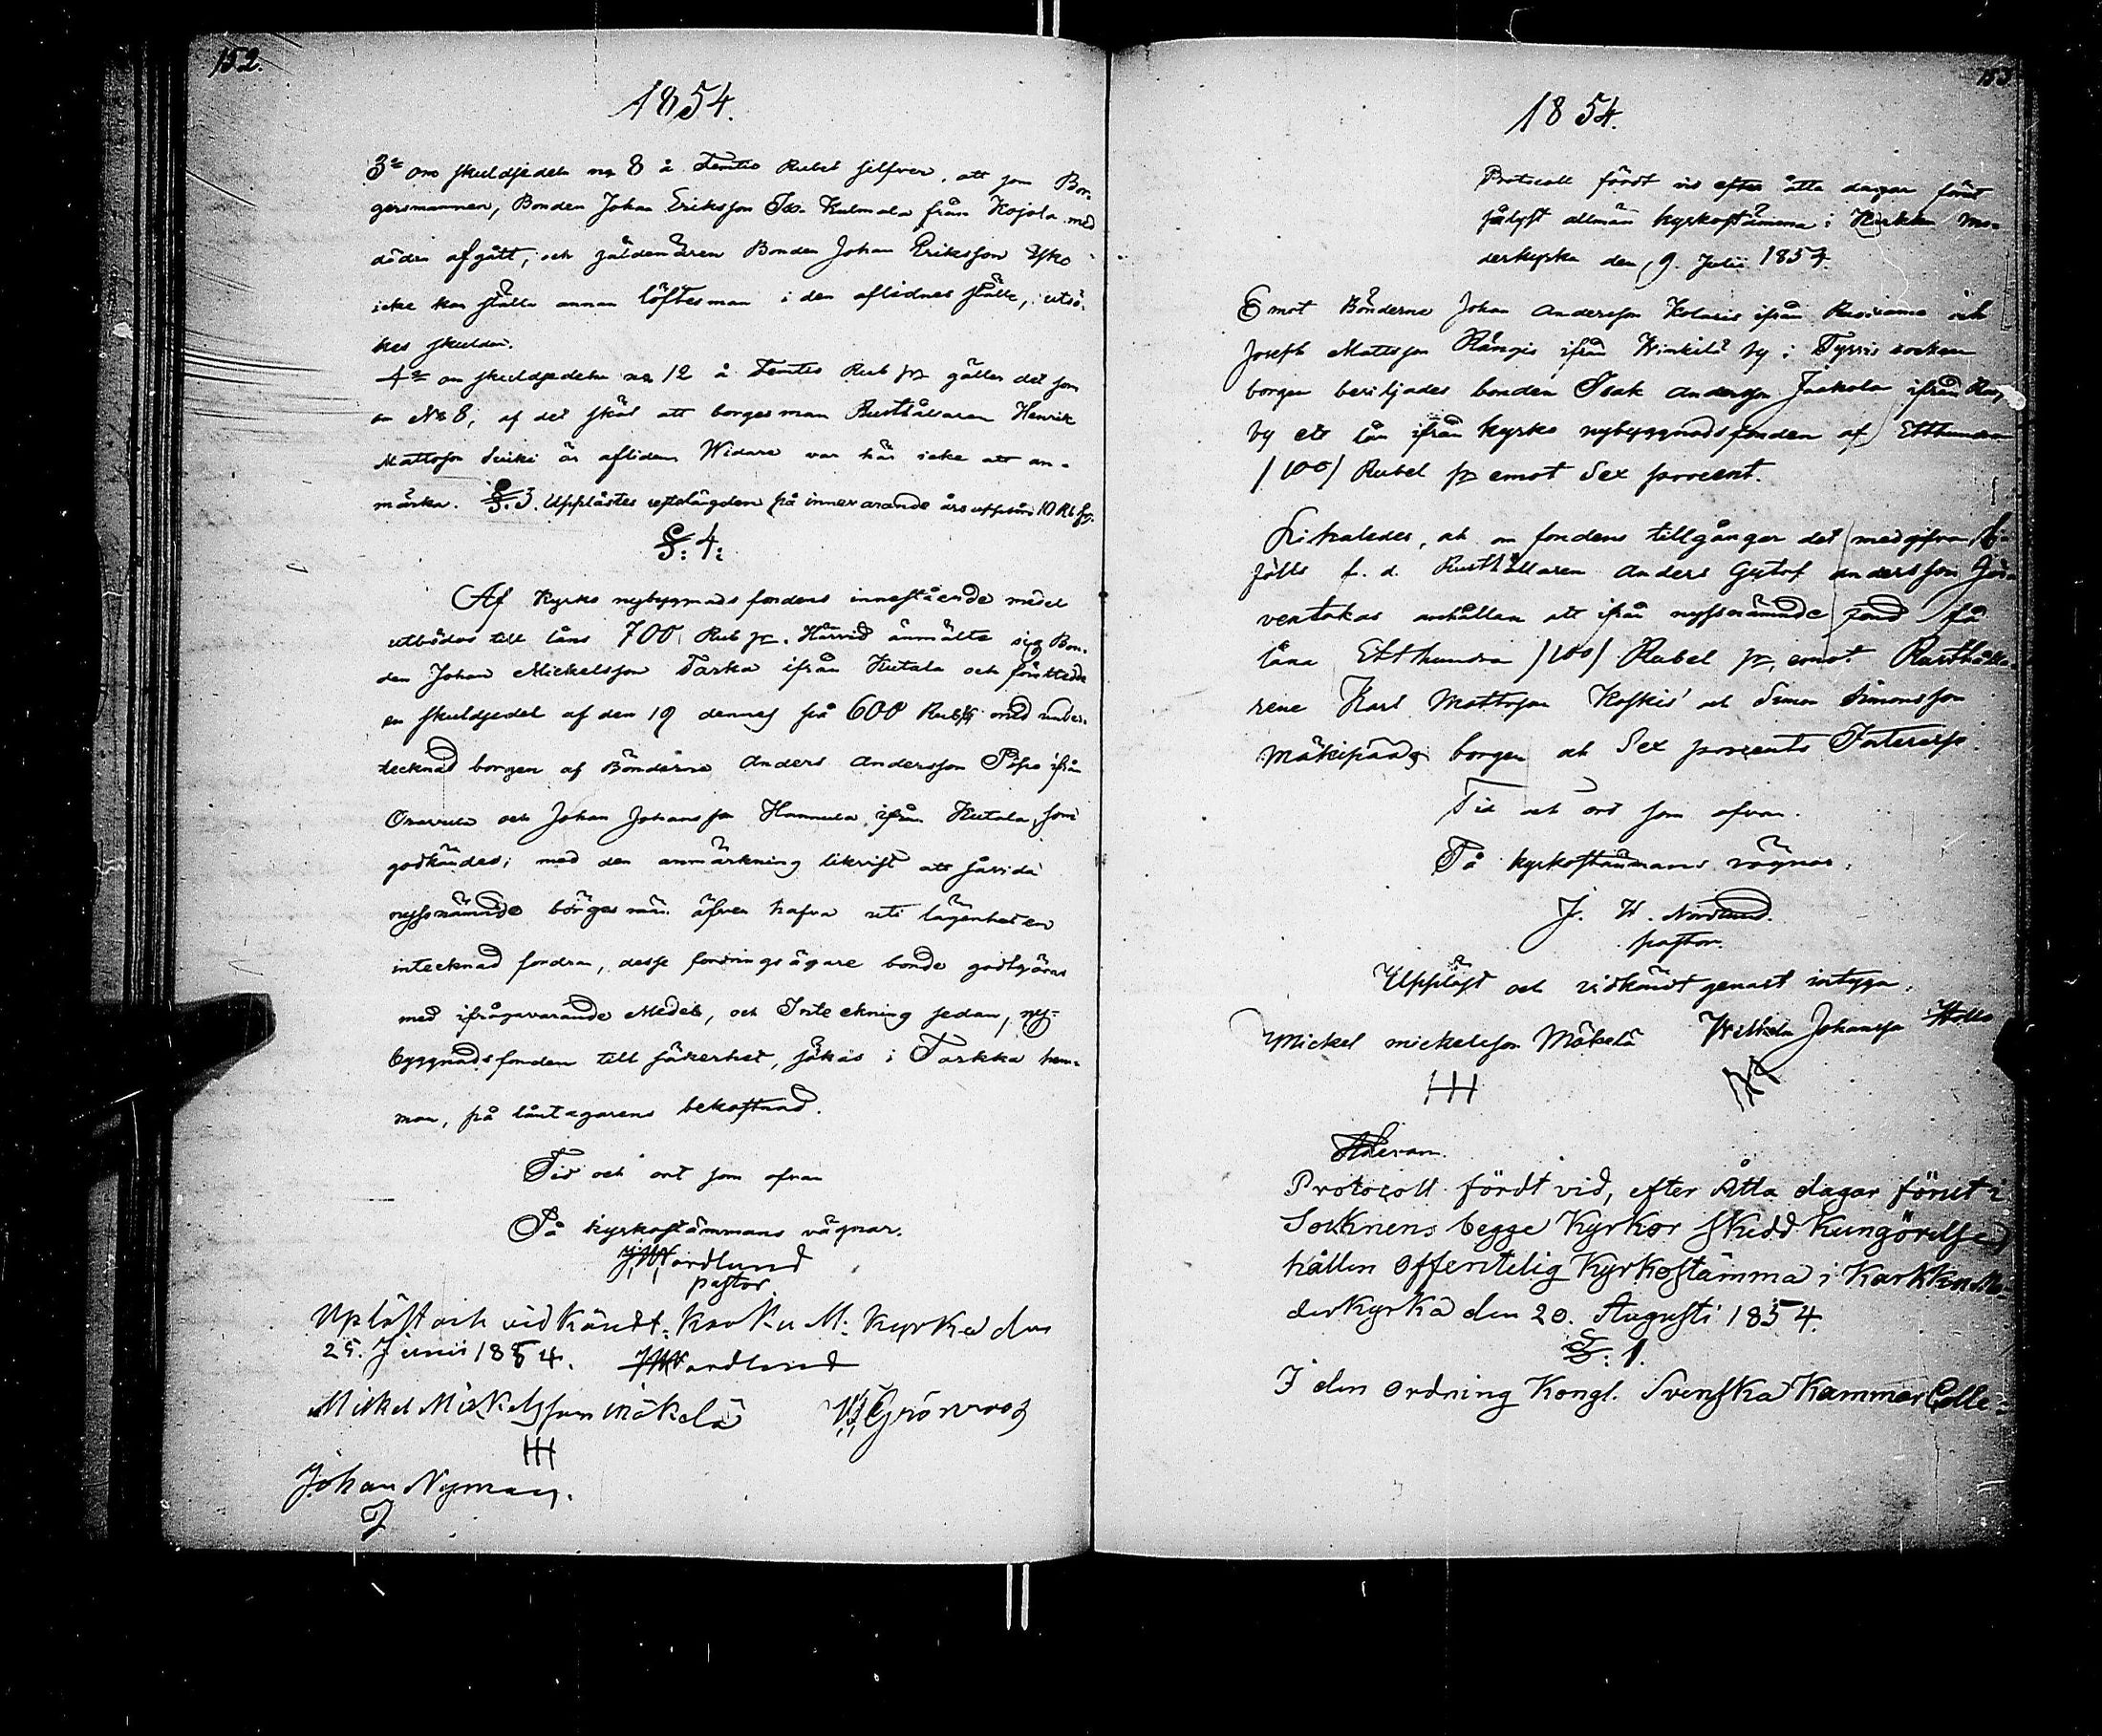 152.
1854.
3:o om skuldsedeln no 8 å Femtio Rubel silfver, att som Bor-
gesmannen, Bonden Johan Eriksson Kulmala från Kojola med
döden afgått, och gäldenären Bonden Johan Eriksson Yko
icke kan ställa annan löftesman i den aflidnes ställe, utsö-
kes skulden.
4:o om skuldsedeln no 12 å Femtio Rub sr gäller det som
om No 8, af det skäl att borgesman Rusthållaren Henrik
Mattsson är afliden Widare var här icke att an-
märka. §. 3. Upplästes längden på innevarande års
§: 4:
Af Kyrko nybyggnads fondens innestående medel
utbödos till låns 700 Rub sr. Härvid anmälte sig Bon-
den Johan Mickelsson Tarka ifrån Kutala och företedde
en skuldsedel af den 19 dennes på 600 Rub sr med under-
tecknad borgen af Bönderne Anders Andersson Pispo ifrån
Oravula och Johan Johansson Hannula ifrån Kutala, som
godkändes; med den anmärkning likvist att såvida
nyssnämnde borgesmän äfven hafva uti lägenheten
intecknad fordran, desse fordringsägare borde godtgöras
med ifrågavarande Medel, och Inteckning sedan, ny-
byggnadsfonden till säkerhet, sökas i Tarkka hem-
man, på låntagarens bekostnad.
Tid och ort som ofvan
På kyrkostämmans vägnar.
J.W. Nordlund
pastor
Upläst och vidkändt: Karkku M: Kyrka den
25. Junii 1854. JWNordlund
Mickel Mickelsson Mäkelä Grönroos
HH
Johan Nyman.
153
1854.
Protocoll fördt vid efter åtta dagar förut
pålyst allmän kyrkostämma i Karkku Mo-
derkyrka den 9. Julii 1854.
Emot Bönderne Johan Andersson Kolaris ifrån och
Joseph Mattsson ifrån Winkilä by i Tyrvis socken
borgen beviljades bonden Isak Andersson Jaakola ifrån
by ett lån ifrån kyrko nybyggnadsfonden af Etthundra
/100/ Rubel sr emot Sex procent.
Likaledes, och om fondens tillgångar det medgifva, bi-
fölls f. d. Rusthållaren Anders Gustaf Andersson
anhållan att ifrån nyssnämnde fond få
låna Etthundra /100/ Rubel sr, emot Rusthålla-
rene Karl Mattsson Koskis' och Simon Simonsson
Mäkipääs borgen och Sex procents Interesse.
Tid och ort som ofvan.
På kyrkostämmans vägnar:
J. W. Nordlund.
pastor.
Uppläst och vidkändt genast intyga:
Mickel Mickelsson Mäkelä Wilhelm Johansson
HH
Protocoll fördt vid, efter Åtta dagar förut i
Socknens begge Kyrkor skedd Kungörelse,
hållen offentelig Kyrkostämma i Karkku Mo-
derkyrka den 20. Augusti 1854.
§: 1.
I den ordning Kongl. Svenska Kammar Colle-